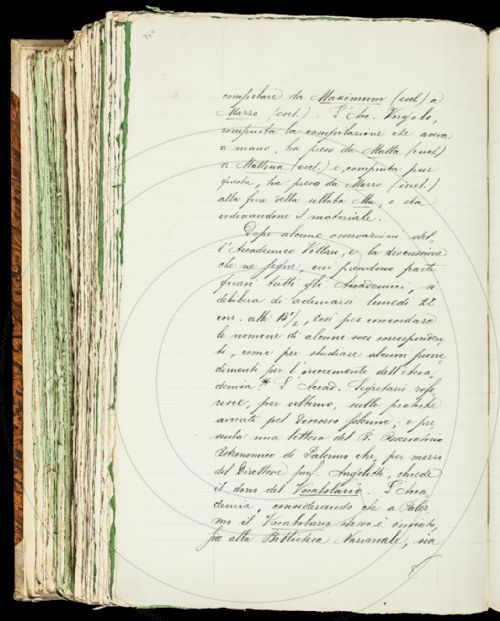 compilare da Maximum (escl.) a
Mazzo (escl.). L'Acc. Vngoli,
compiuta la compilazione che aveva
a mano, ha preso da Matta (incl.)
a Mattina (escl.) e, compiuta pur
questa, ha preso da Mazzo (incl.)
alla fine della sillaba Ma, e sta
ordinandone il materiale.
Dopo alcune osservazioni del-
l'Accademico Villari, e la discussione
che ne segue, cui prendono parte
quasi tutti gli Accademici, si
delibera di adunarsi lunedì 22
corr. alle 15½, così per concordare
le nomine di alcuni soci corrisponden-
ti, come per studiare alcuni prove-
dimenti per l'incremento dell'Acca
demia.* L'Accad. Segretario rife-
risce, per ultimo, sulle pratiche
avviate pel Discorso solenne; e pre
senta una lettera del R. Osservatorio
Astronomico di Palermo che, per mezzo
del Direttore prof. Angelitti, chiede
il dono del Vocabolario. L'Acca
demia, considerando che a Paler
mo il Vocabolario stesso è inviato,
sia alla Biblioteca Nazionale, sia